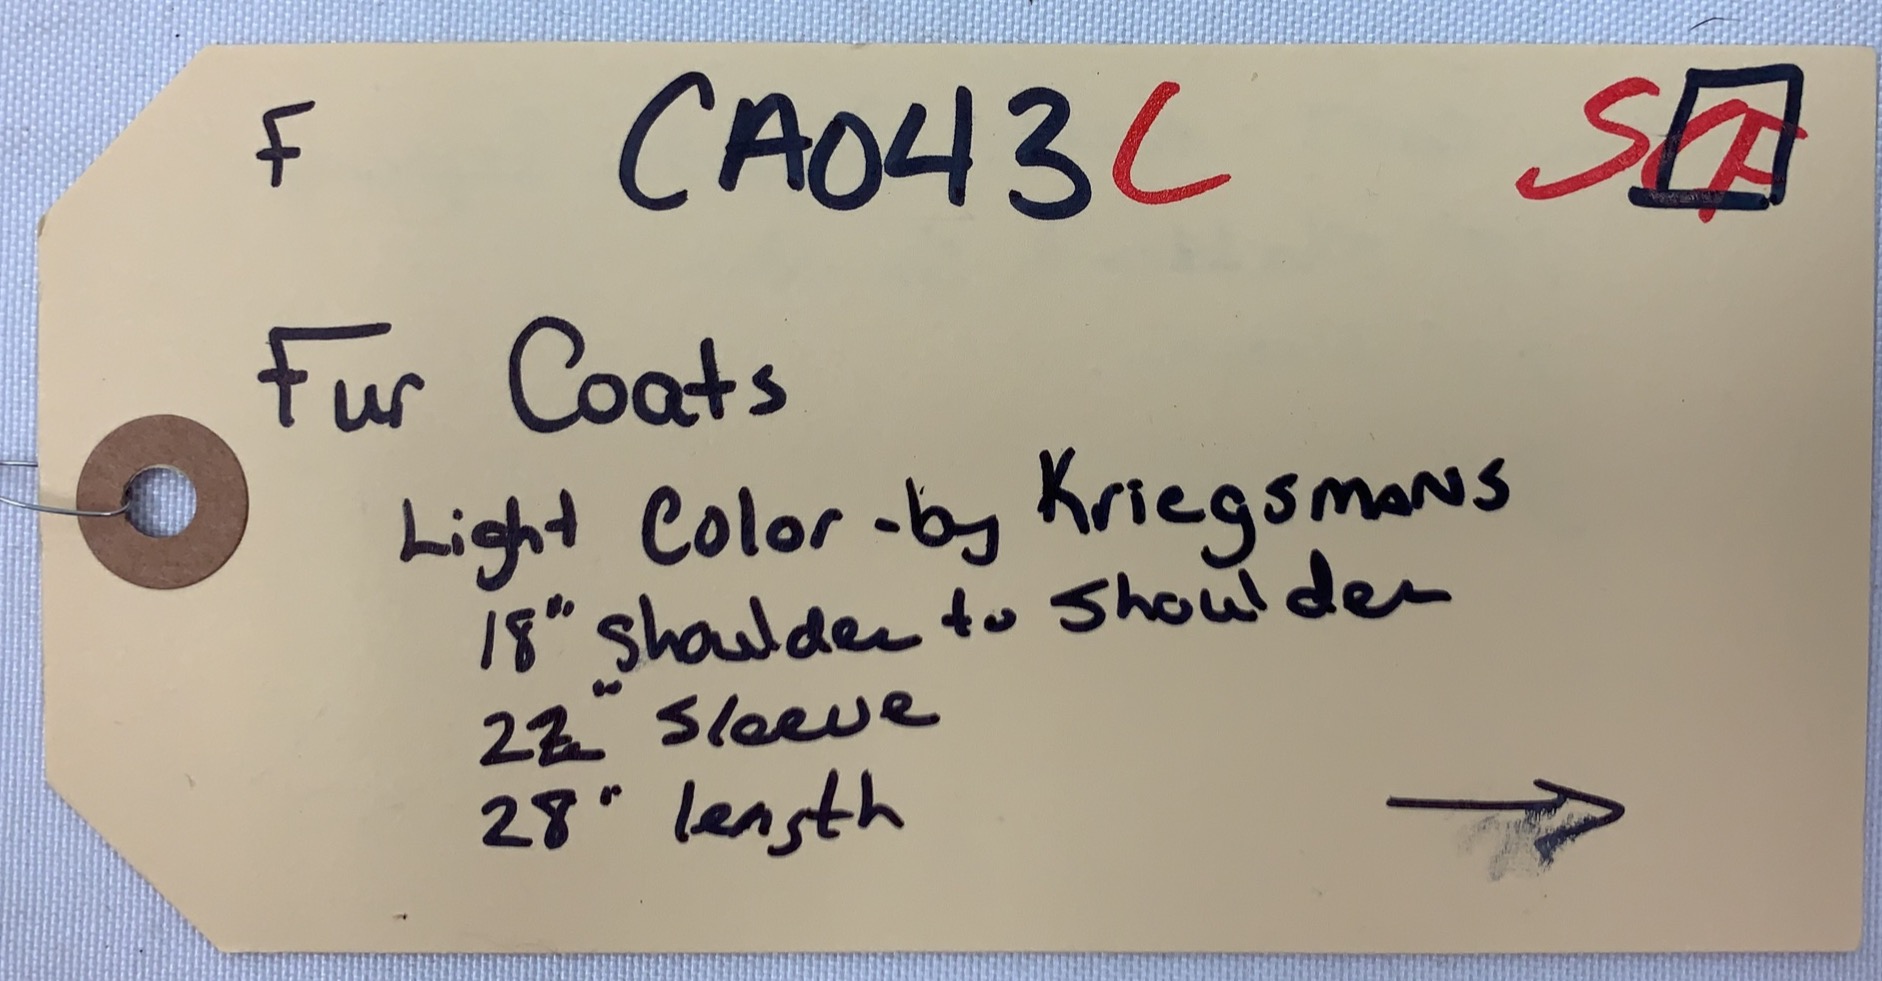 F CA043C
Fur Coats
Light Color - by Kriegsmans
18" shoulder to shoulder
22" sleeve
28" length